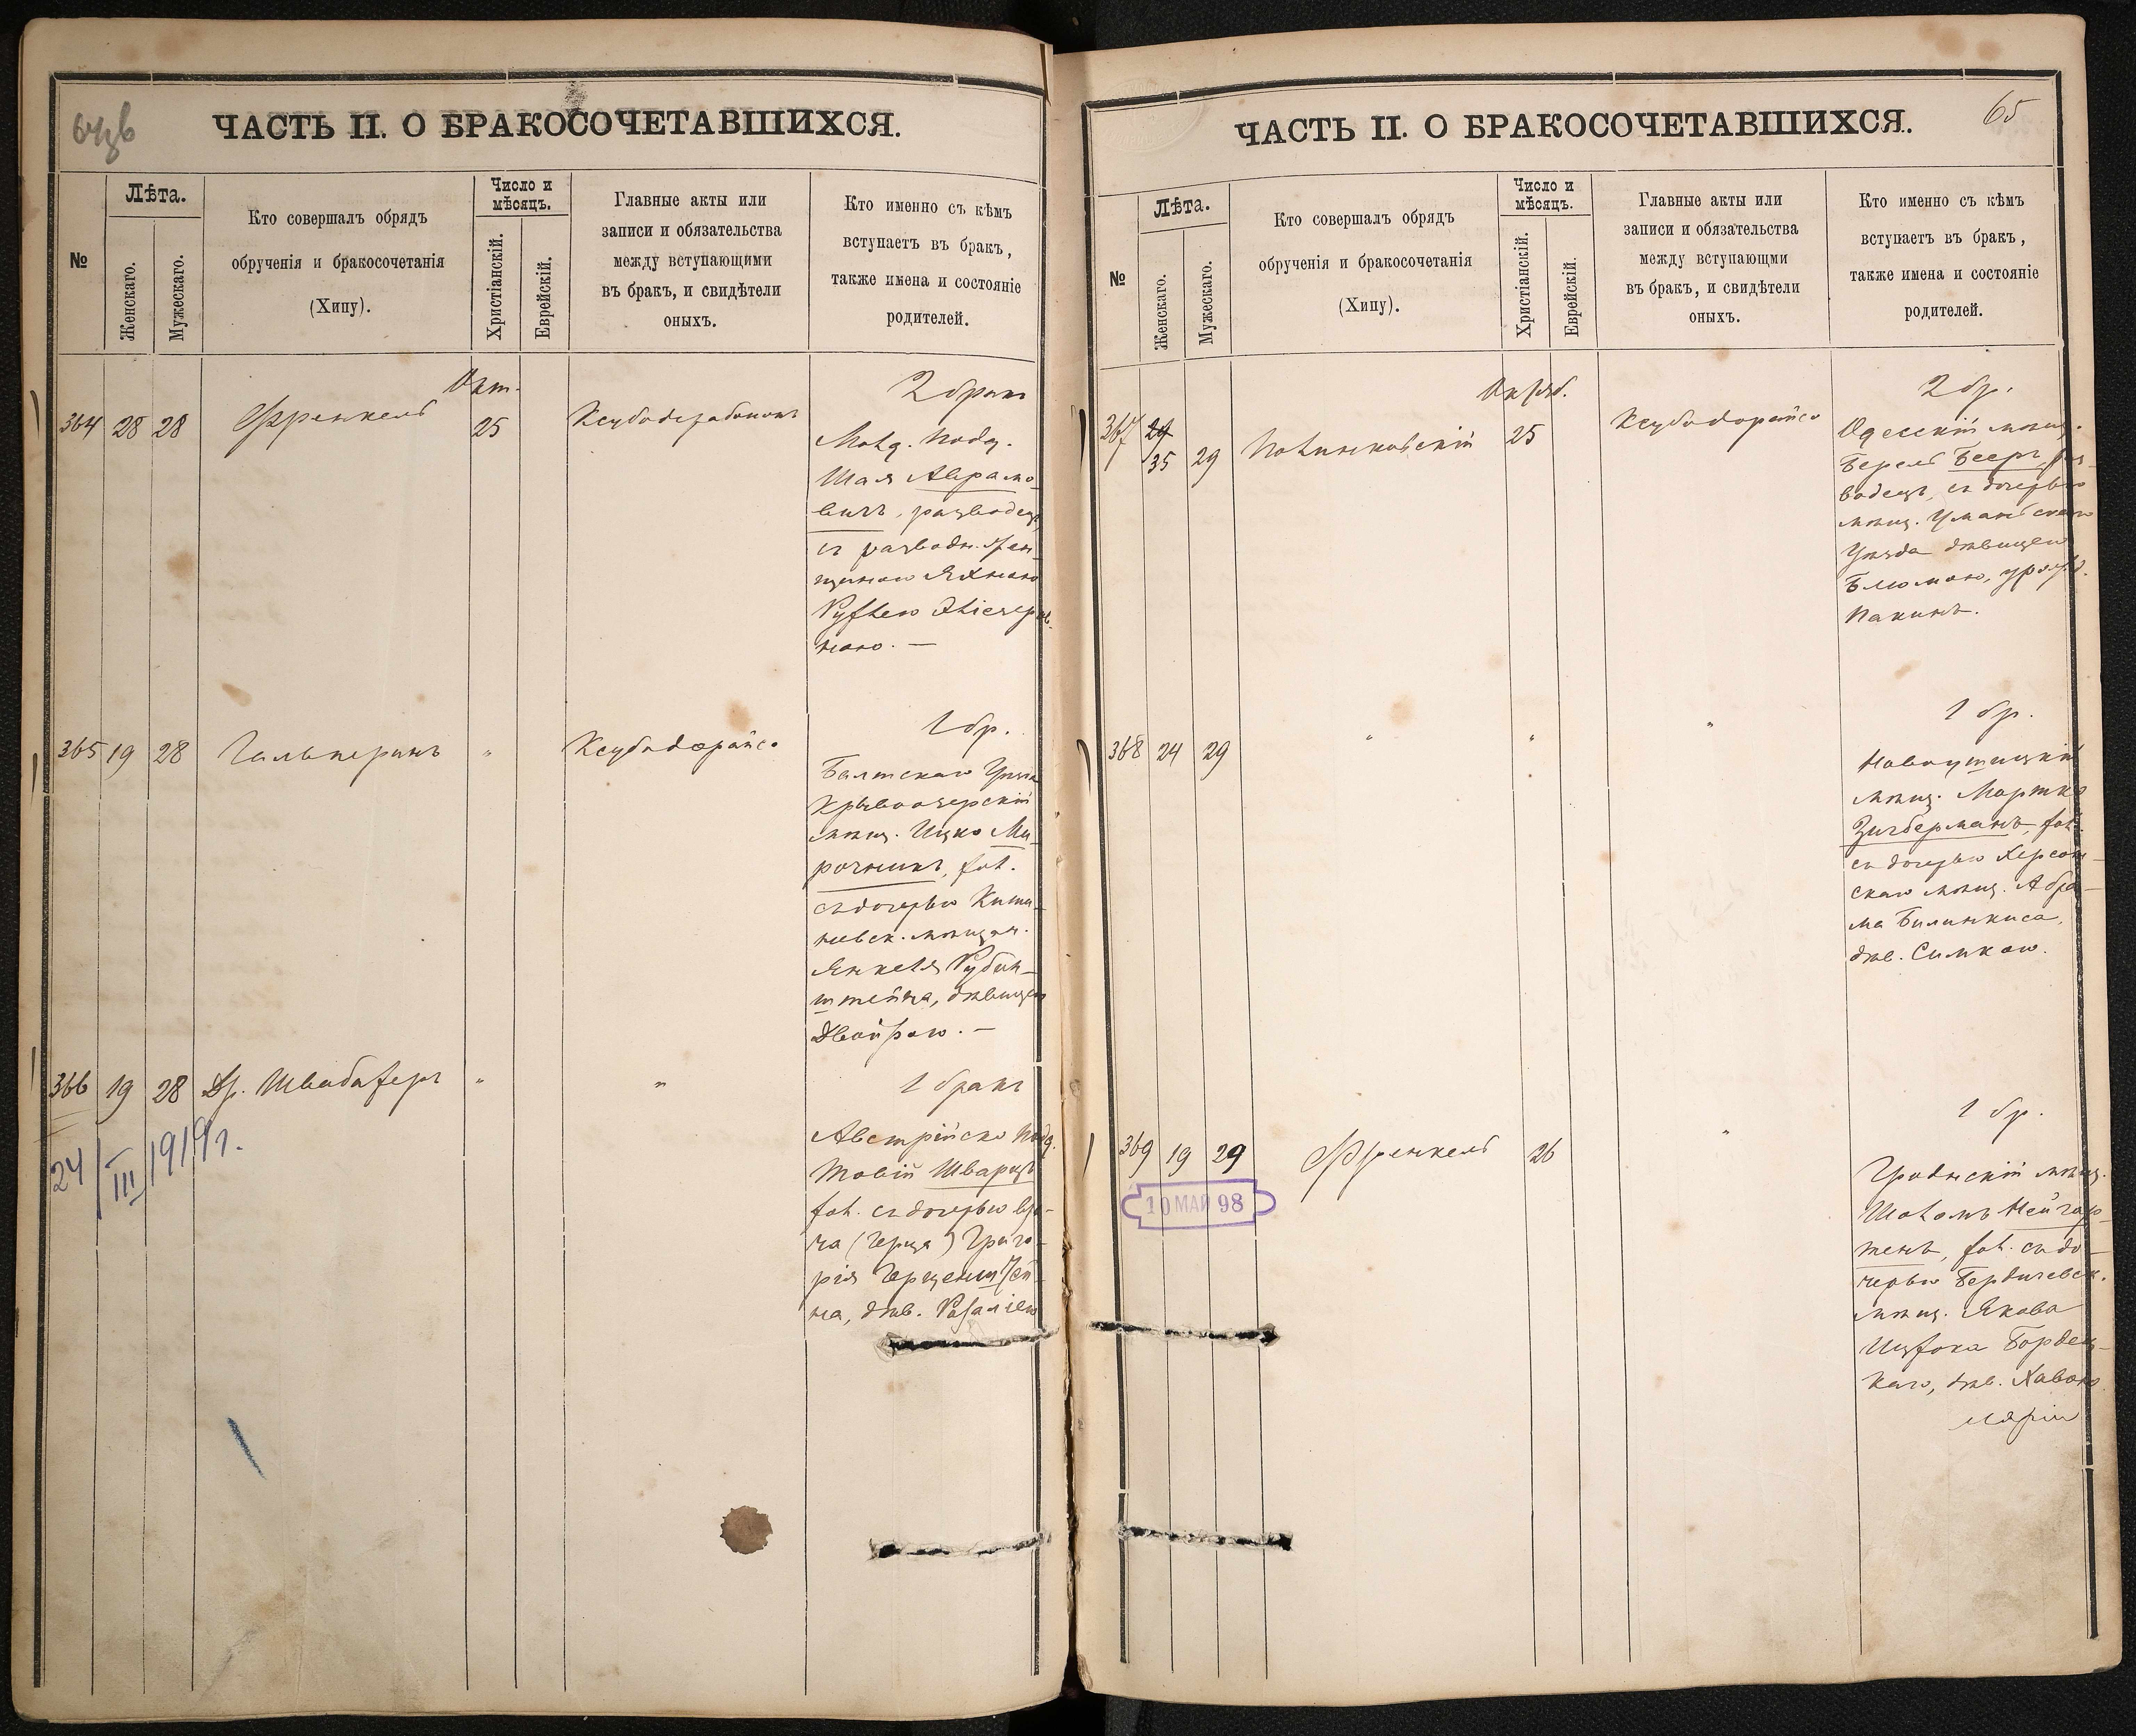 64об
ЧАСТЬ II. О БРАКОСОЧЕТАВШИХСЯ.
№
Лѣта.
Женскаго.
Мужескаго.
Кто совершалъ обрядъ
обрученія и бракосочетанія
(Хипу).
Число и
мѣсяцъ.
Христіанскій.
Еврейскій.
Главные акты или
записи и обязательства
между вступающими
въ бракъ, и свидѣтели
оныхъ.
Кто именно съ кѣмъ
вступаетъ въ бракъ,
также имена и состояніе
родителей.
Окт.
364 28 28 Френкель 25
2 бракъ
под.
Шая Аврамо-
вичъ, разводецъ,
съ разводн. жен-
щиною
ною. —
365 19 28 Гальперинъ " Ксубадорайсо
1 бр.
Балтскаго Уѣзда
Кривоозерскій
мѣщ. Ицко Ми-
рочникъ, хол.
съ дочерью Киши-
невск. мѣщан.
Янкеля Рубин-
штейна, дѣвицею
Двойрою. —
366 19 28 Др. Швабахеръ " "
1 бракъ
Австрійско под.
Товій Шварцъ
хол. съ дочерью вра-
ча (Герца) Григо-
рія Герценштей-
на, дѣв. Розаліею
24/III 1919 г.
65
ЧАСТЬ II. О БРАКОСОЧЕТАВШИХСЯ.
№
Лѣта.
Женскаго.
Мужескаго.
Кто совершалъ обрядъ
обрученія и бракосочетанія
(Хипу).
Число и
мѣсяцъ.
Христіанскій.
Еврейскій.
Главные акты или
записи и обязательства
между вступающми
въ бракъ, и свидѣтели
оныхъ.
Кто именно съ кѣмъ
вступаетъ въ бракъ,
также имена и состояніе
родителей.
Октяб.
367 35 29 Полинковскій 25 Ксубадорайсо
2 бр.
Одесскій мѣщ.
Берель Бееръ, раз-
водецъ, съ дочерью
мѣщ. Уманьскаго
Уѣзда дѣвицею
Блюмою, урожд.
Пакинъ.
368 24 29 " " "
1 бр.
Новоушицкій
мѣщ. Мортко
Зигберманъ, хол.
съ дочерью Херсон-
скаго мѣщ. Абра-
ма Билинкиса,
дѣв. Симкою.
369 19 29 Френкель 26 "
10 МАЙ 98
1 бр.
Гродненскій мѣщ.
Шоломъ Нейгар-
тенъ, хол. съ до-
черью Бердичевск.
мѣщ. Якова
Ицхока Бордец-
каго, дѣв. Хавою